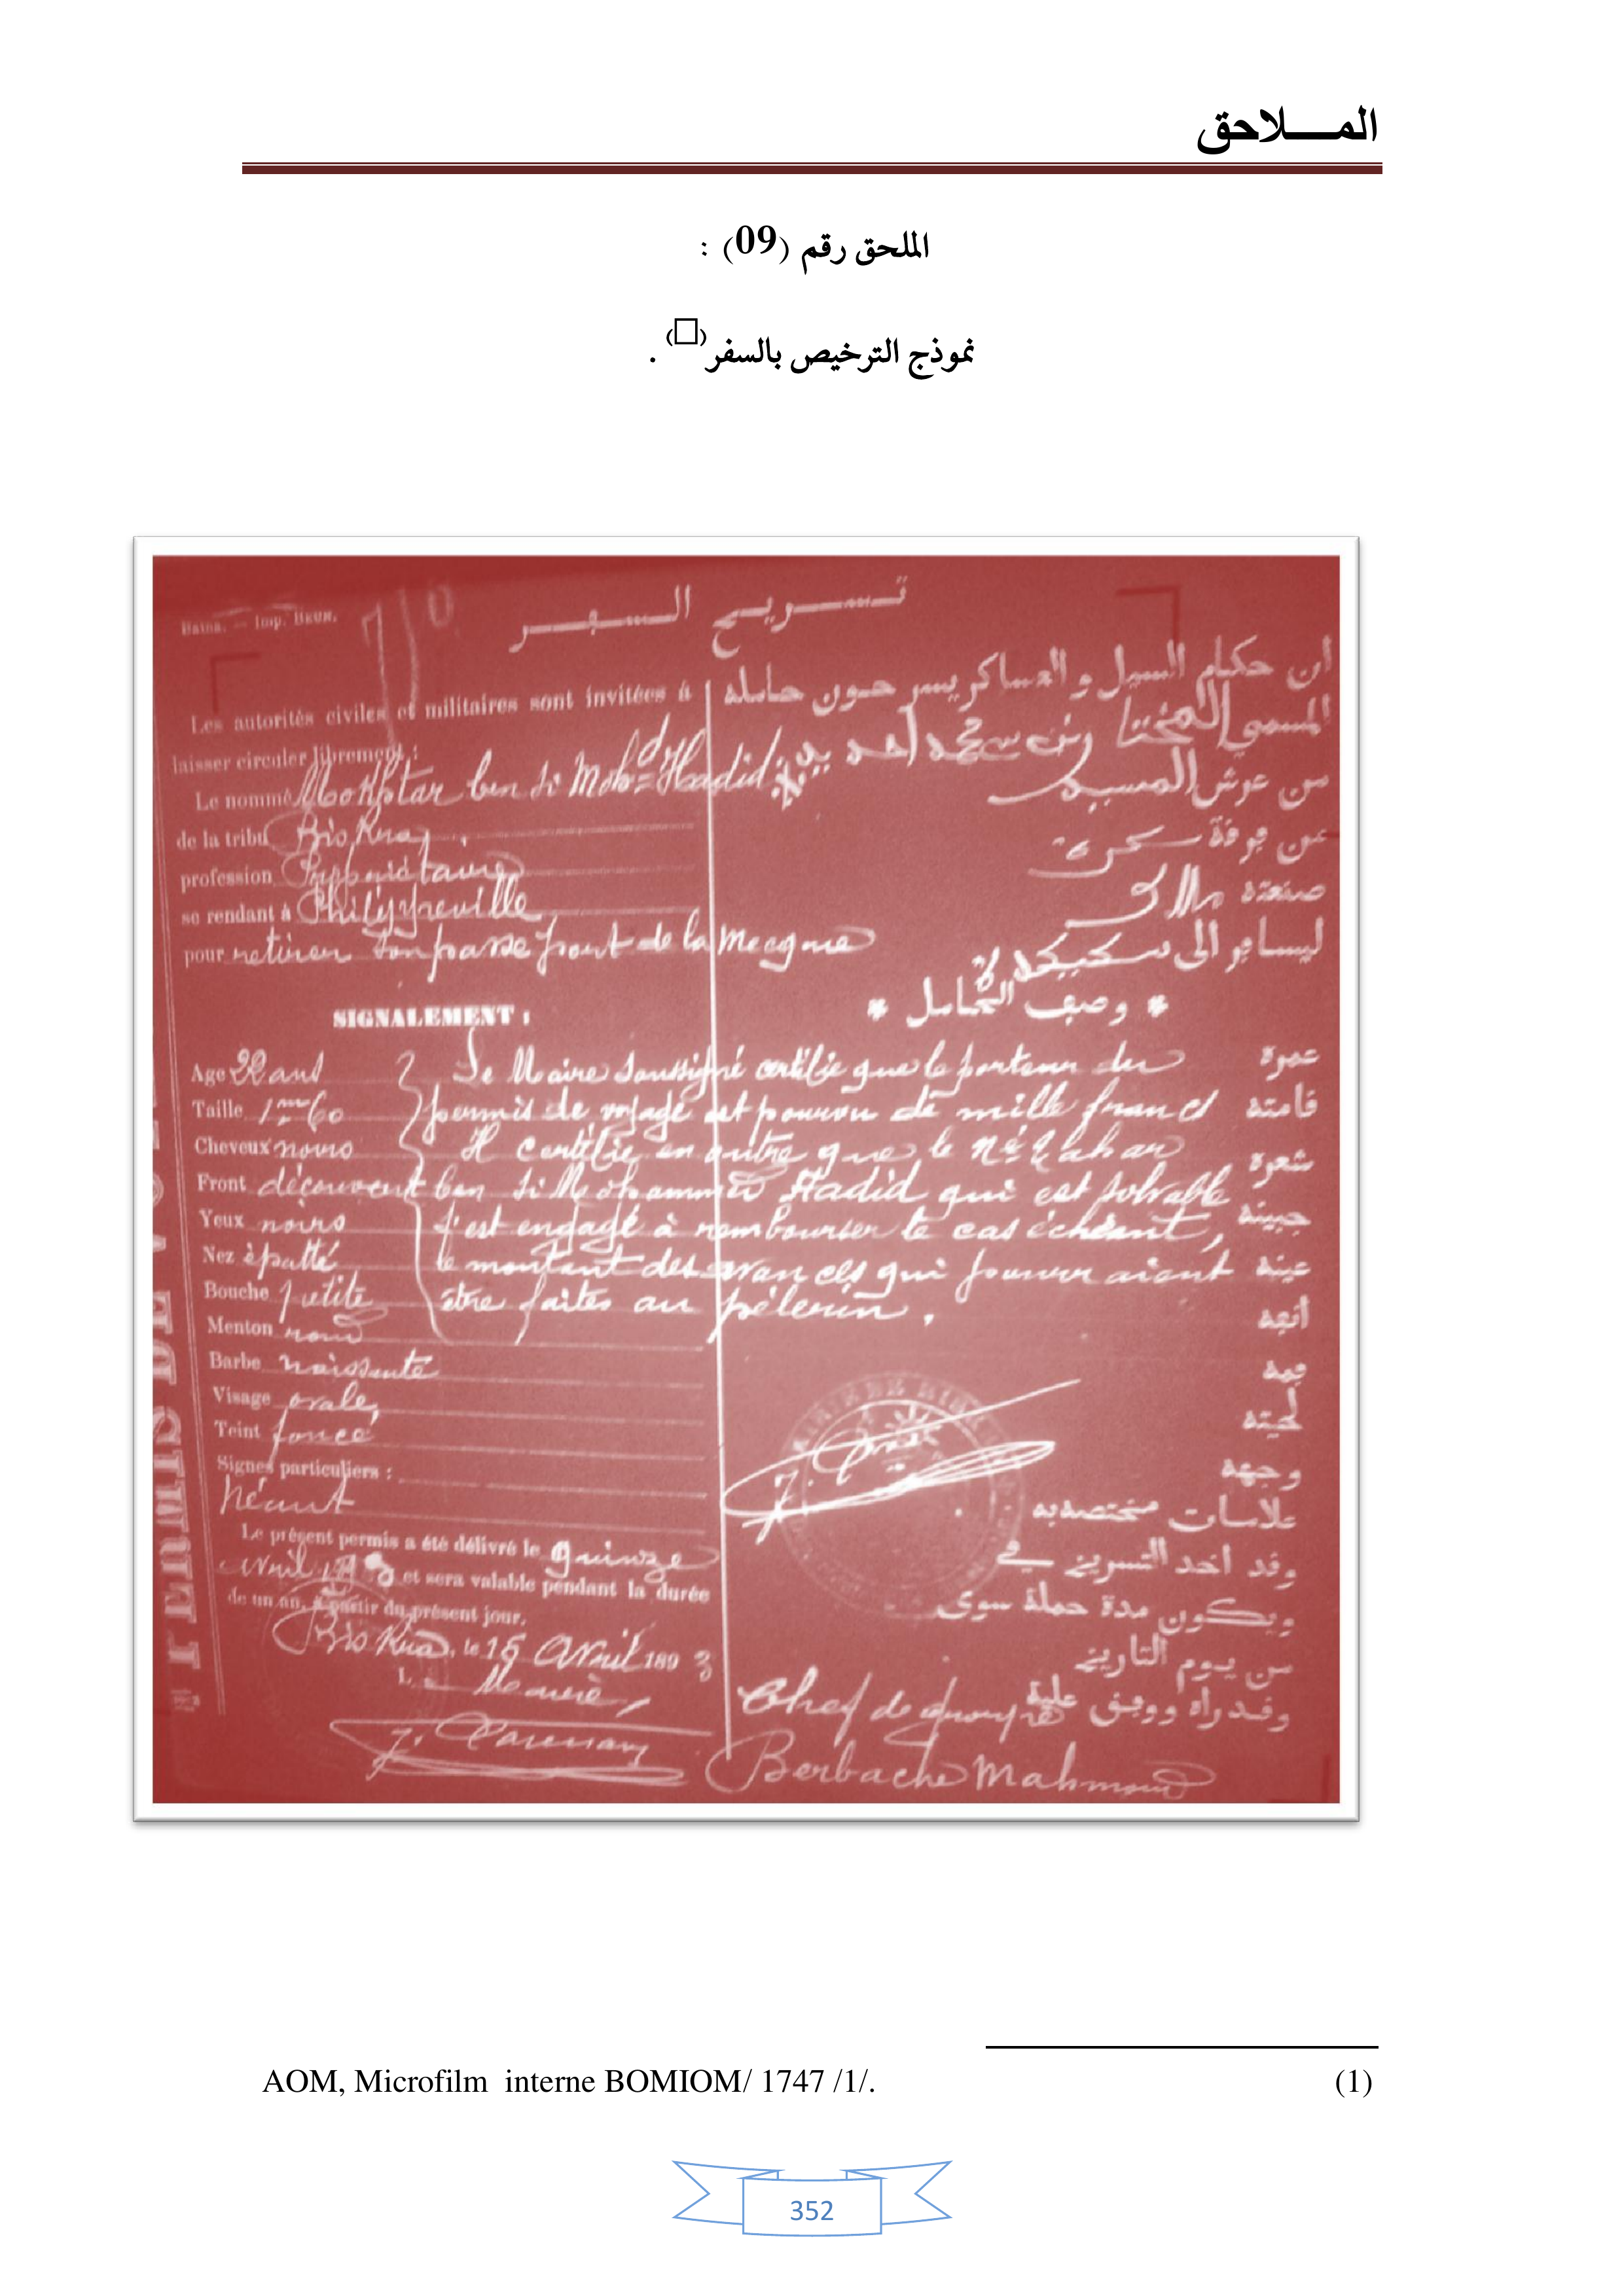 المـــــلاحق
الملحق رقم (09) :
نموذج الترخيص بالسفر(□) .
Batna. — Imp. BEUN.
تـســريـح الـسـڢــر
Les autorités civiles et militaires sont invitées à
laisser circuler librement :
Le nommé Mokhtar ben Si Moh=d Hadid
de la tribu Biskra
profession Propriétaire
se rendant à Philippeville
pour retirer son passeport de la Mecque
ان حكام السيل و العساكر يسرحون حامله
المسمى المختار بن سي محمد احديد
من عرش المسيد
من ڢرڧة سكرة
صنعته ملاك
ليساڢر الى سكيكدة
* وصڢ الحامل *
SIGNALEMENT :
Age 22 ans
Taille 1m60
Cheveux noirs
Front découvert
Yeux noirs
Nez épatté
Bouche petite
Menton rond
Barbe naissante
Visage ovale
Teint foncé
Signes particuliers :
Néant
Le Maire soussigné certifie que le porteur du
permis de voyage est pourvu de mille francs
Il certifie en outre que le né Lahar
ben Si Mohammed Hadid qui est solvable
s'est engagé à rembourser le cas échéant,
le montant des avances qui pourraient
être faites au pélerin.
عمره
ڧامته
شعره
جبينه
عينه
انڢه
ڢمه
لحيته
وجهه
علامات مختصه به
وڧد اخد التسريح ڢي
ويكون مدة حملة سوى
من يوم التاريخ
وڧد راه ووڢڧ عليه
Le présent permis a été délivré le quinze
avril et sera valable pendant la durée
de un an, à partir du présent jour.
Biskra, le 15 Avril 1893
L Maire,
Chef de groupe
Berbache Mahmoud
PERMIS DE
AOM, Microfilm interne BOMIOM/ 1747 /1/. (1)
352